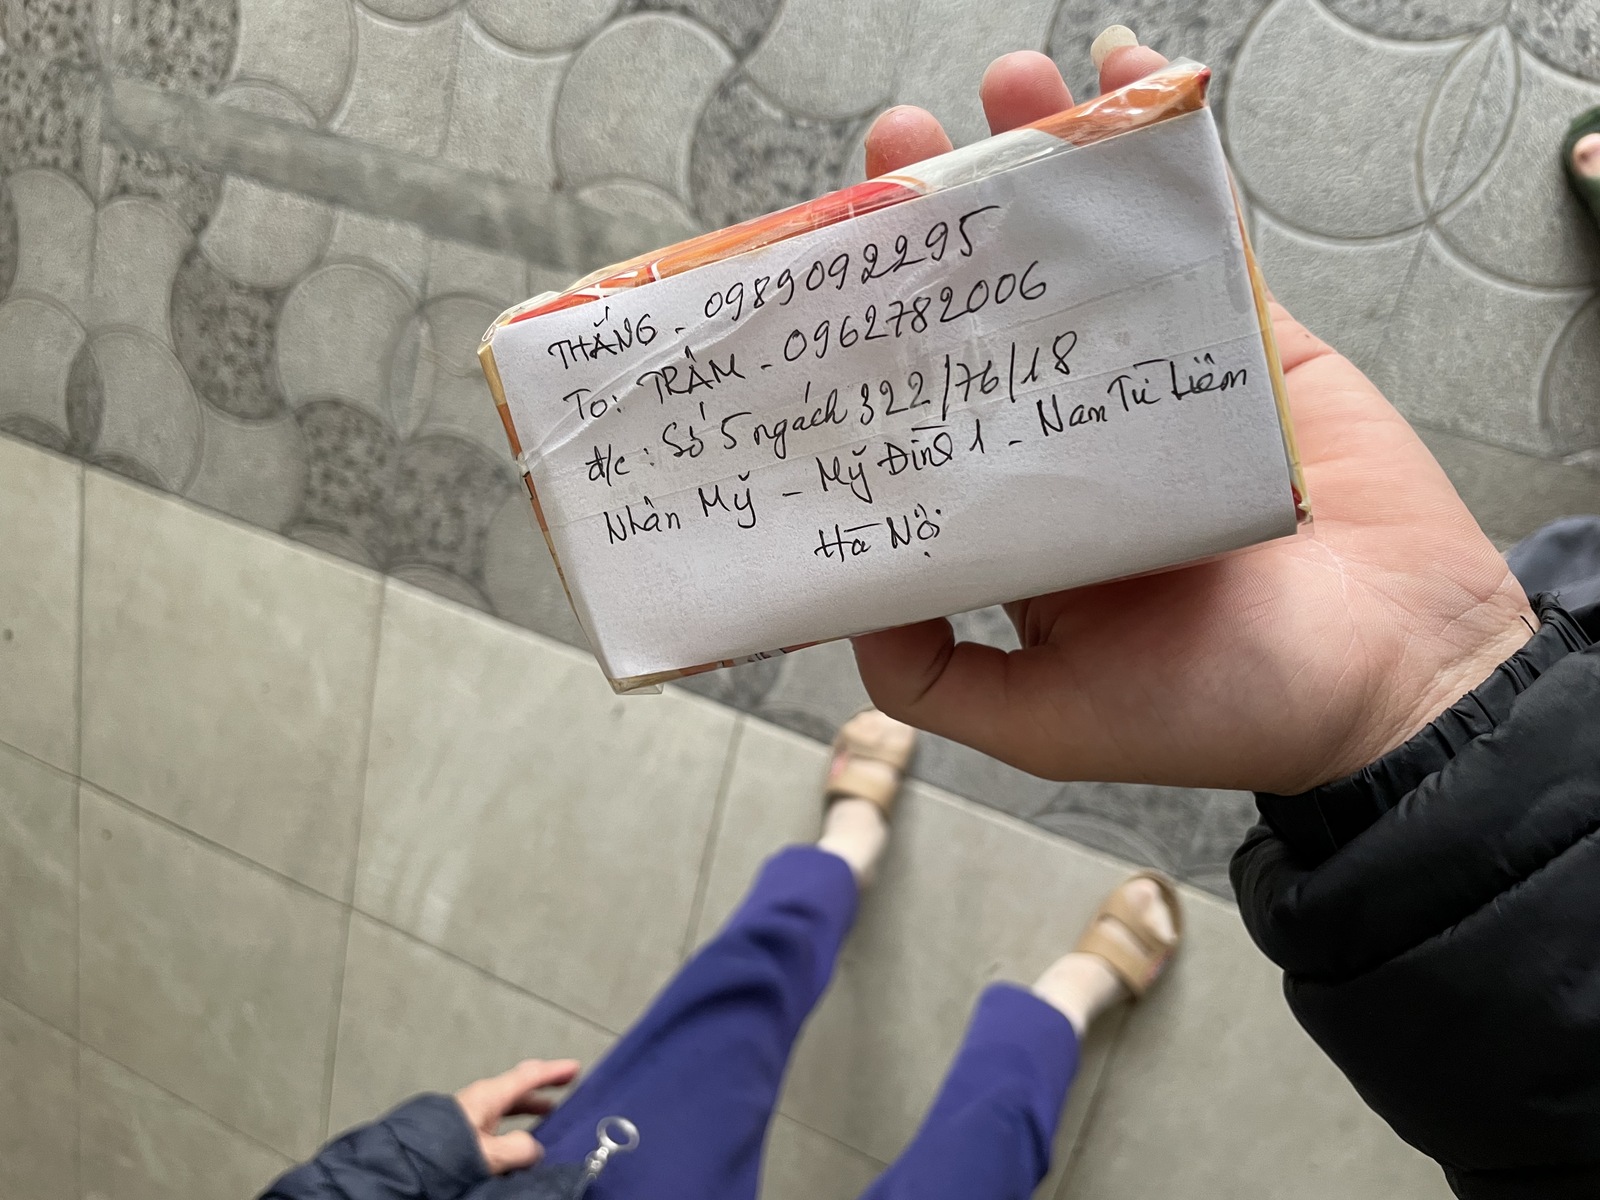 THẮNG - 0989092295
To: TRÂM - 0962782006
đ/c: Số 5 ngách 322/76/18
Nhân Mỹ - Mỹ Đình 1 - Nam Từ Liêm
Hà Nội